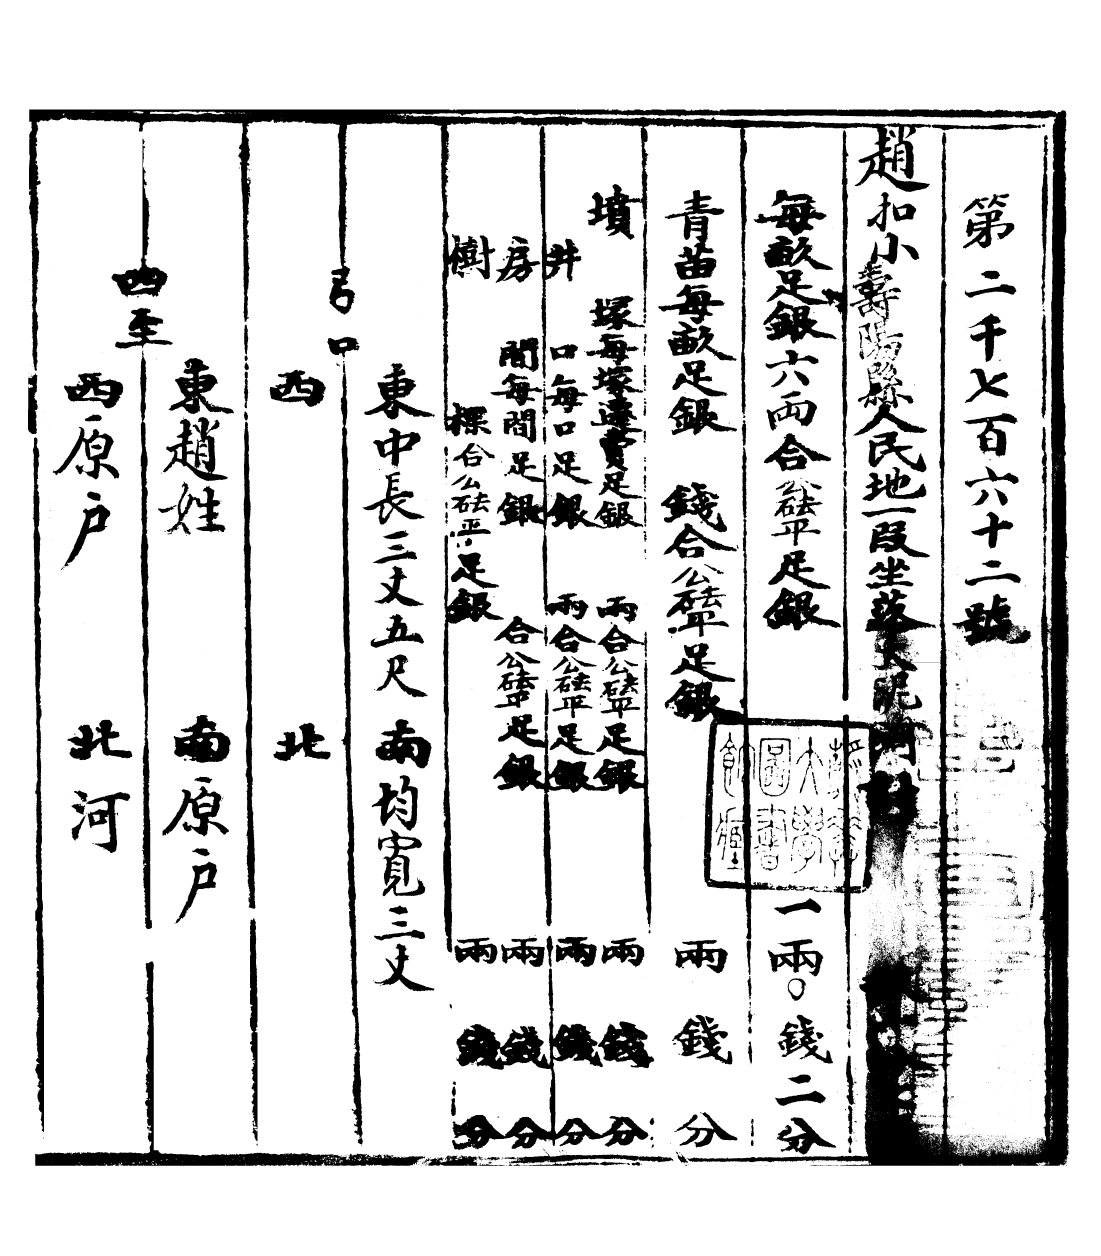 第二千七百六十二號
趙扣小壽陽縣人民地一段坐落
每畝足銀六兩合公砝平足銀一兩〇錢二分
青苗每畝足銀 錢合公砝平足銀 兩 錢 分
墳 塚每塚遷費足銀 兩合公砝平足銀 兩 錢 分
井 口每口足銀 兩合公砝平足銀 兩 錢 分
房 間每間足銀 合公砝平足銀 兩 錢 分
樹 棵合公砝平足銀 兩 錢 分
東中長三丈五尺 南均寬三丈
弓口
西 北
東趙姓 南原户
四至
西原户 北河
大學圖書館